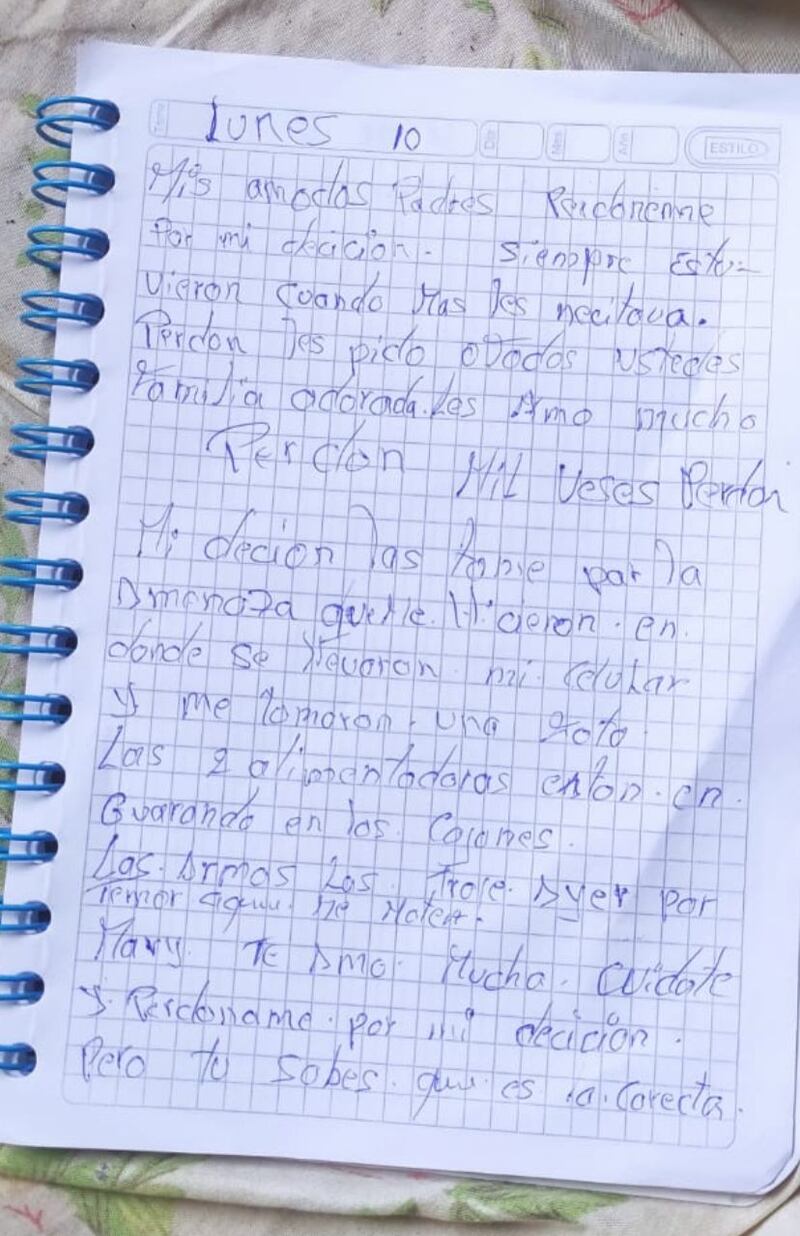 lunes 10
ESTILO
Mis amodos Padres Perdoneme
Por mi decición. Sienopre Estu-
vieron cuando Mas les necitava.
Perdon les pido atodos ustedes
familia adorada. Les Amo mucho
Perdon Mil Veses Perdon
Mi decion las tome por la
Amenaza que Me Hicieron. en.
donde se Llevaron mi celular
y me tomaron. una foto.
Las 2 alimentadoras estan. en.
Guarando en los. Cajones.
Las. Armas Las. Traje. Ayer por
Temor aque. me Maten.
Mary. TE Amo. Mucha. cuidate
y. Perdoname. por mi decición.
Pero tu sabes. que. es .la. Corecta.